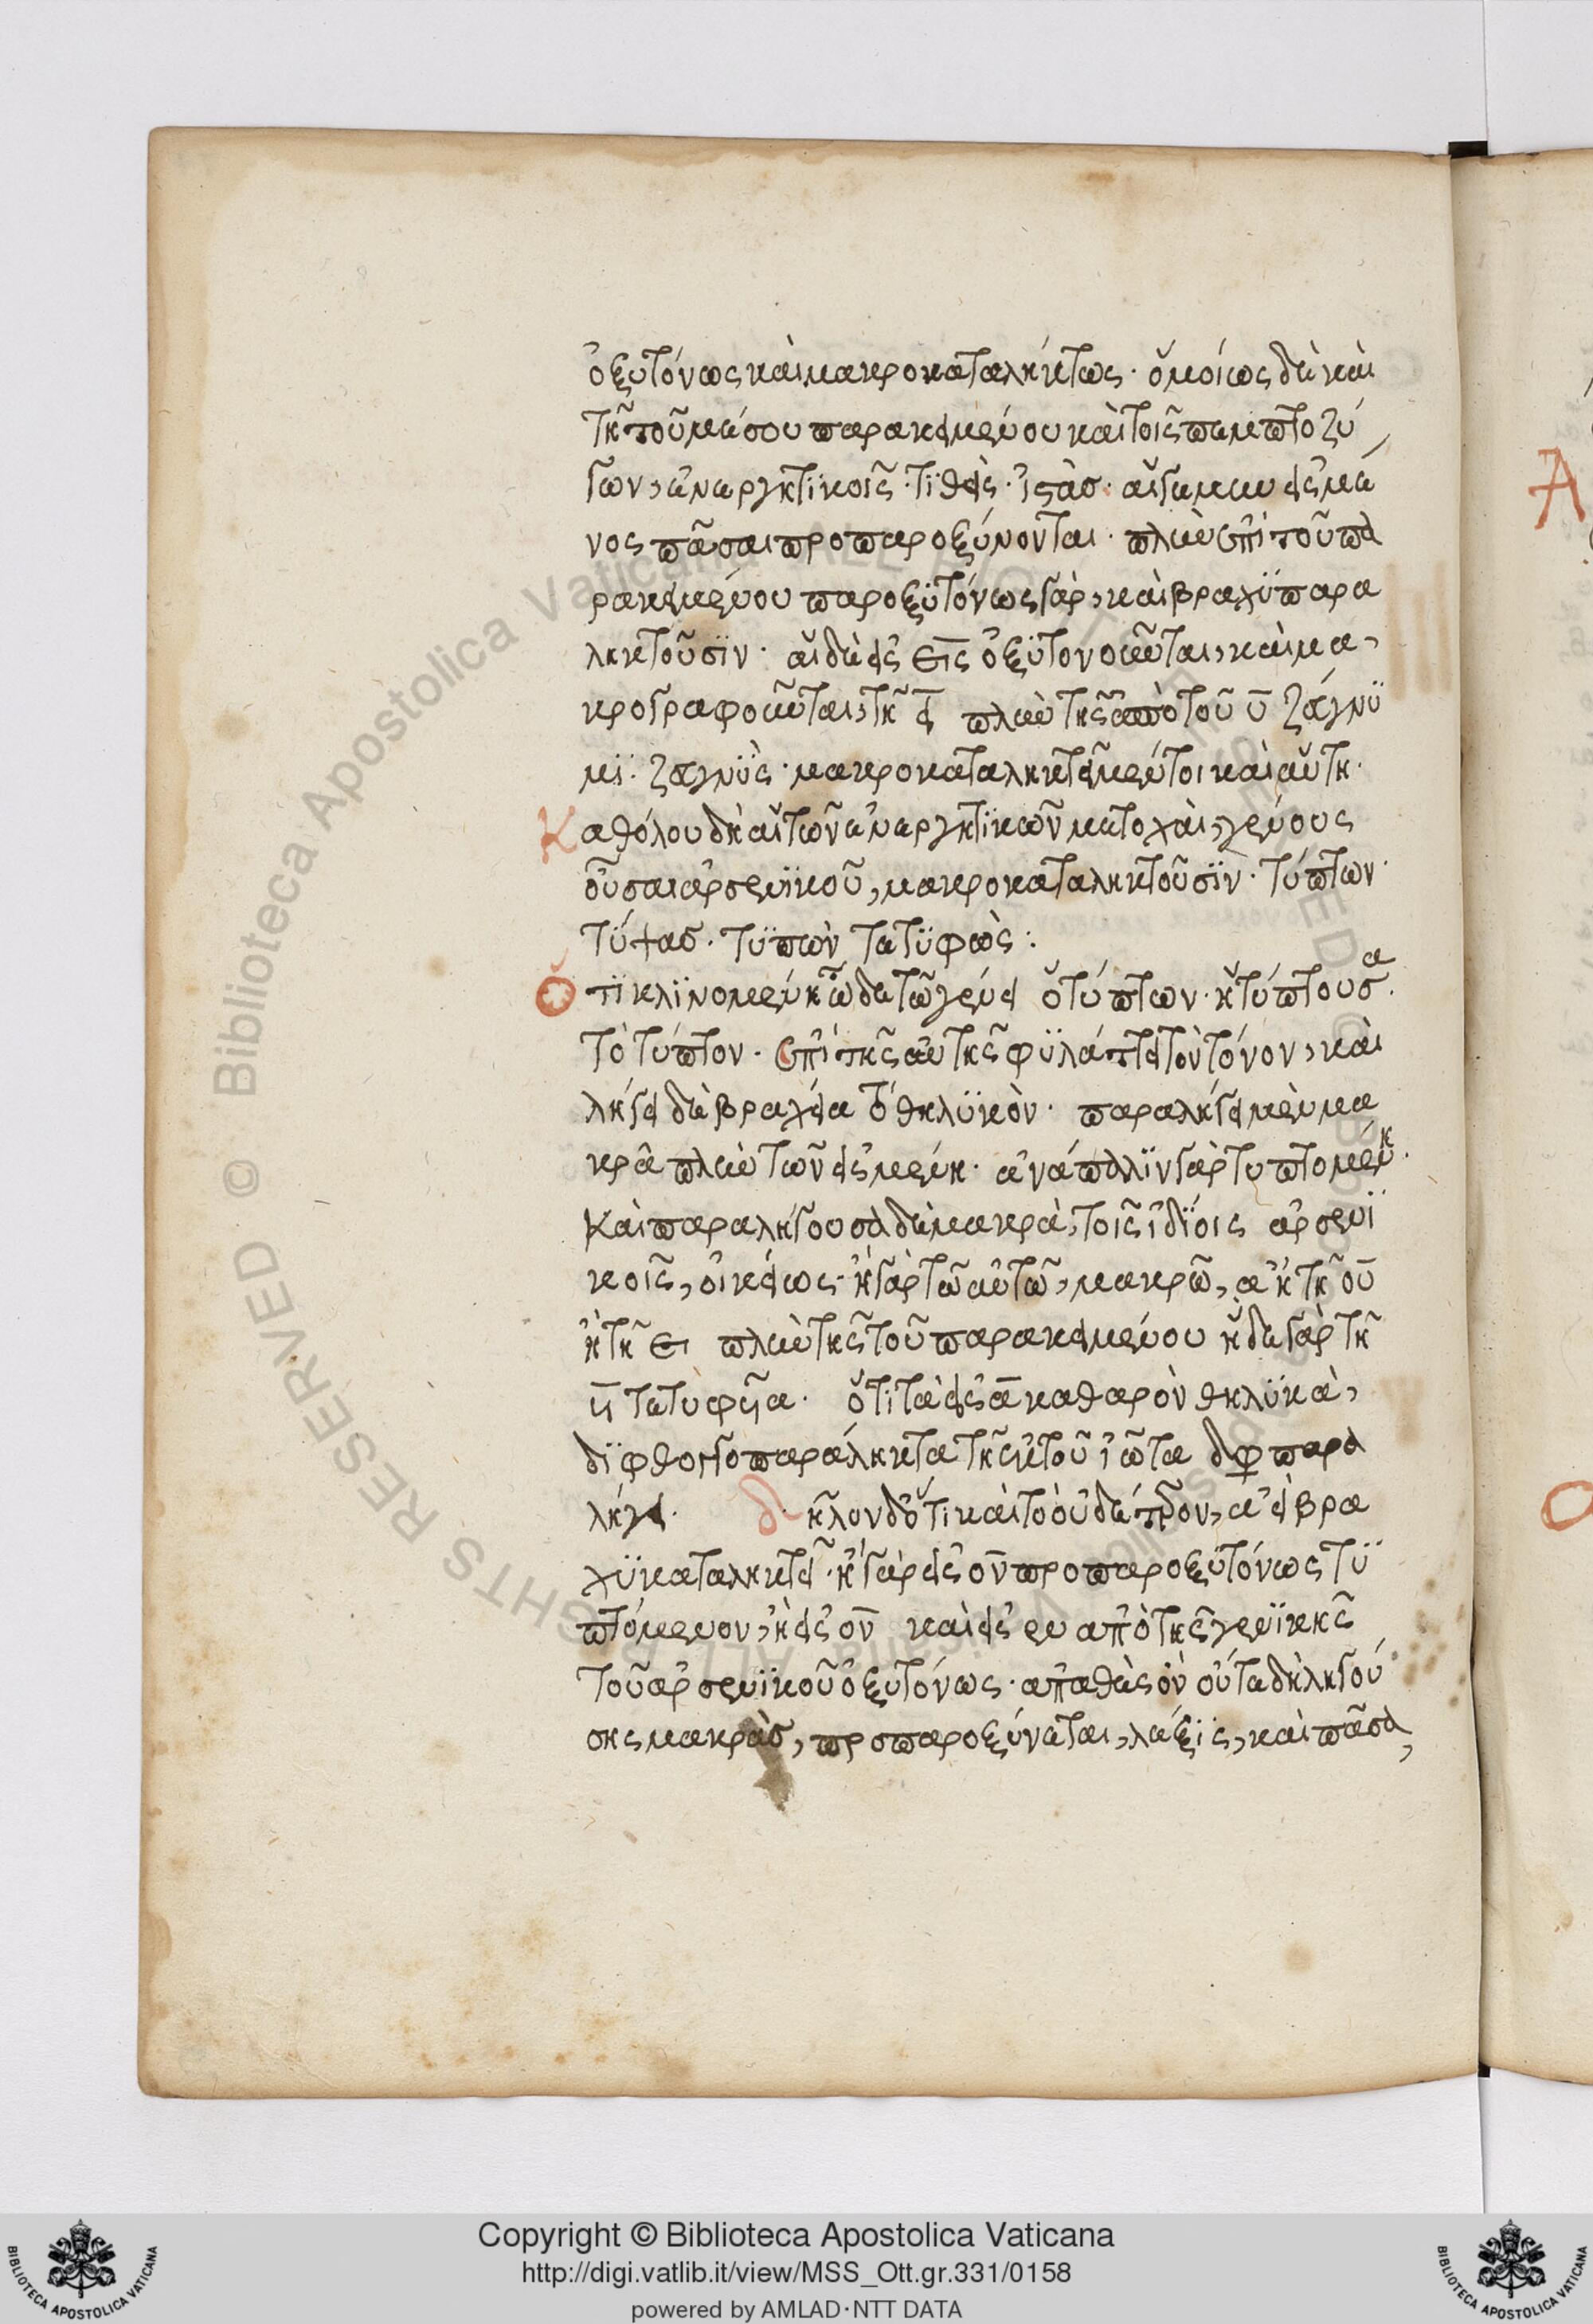 ὀξυτόνως καὶ μακροκαταλήκτως· ὁμοίως δὲ καὶ
τῆ τοῦ μέσου παρακειμένου καὶ τοῖς πεμπτοζύ
γων, ἐνεργητικοῖς· τιθεὶς· ἱστάς· αἱ γε μὲν εἰς με
νος πᾶσαι προπαροξύνονται· πλὴν ἐπὶ τοῦ πα
ρακειμένου παροξυτόνως γὰρ, καὶ βραχυπαρα
ληκτοῦσιν· αἱ δὲ εἰς εις ὀξυτονοῦνται, καὶ μα
κρογραφοῦνται, τῆ ει πλὴν τῆς ἀπὸ τοῦ υ ζεύγνυ
μι· ζευγνὺς· μακροκαταληκτεῖ μέντοι καὶ αὕτη·
Καθόλου δὴ αἱ τῶν ἐνεργητικῶν μετοχαὶ, γένους
οὖσαι ἀρσενικοῦ, μακροκαταληκτοῦσιν· τύπτων·
τύψας· τυπὼν τετυφὼς:
Ὅτι κλινομένη ὧδε τῶ γένει ὁ τύπτων· ἡ τύπτουσα·
τὸ τύπτον· ἐπὶ τῆς αὐτῆς φυλάττει τὸν τόνον, καὶ
λήγει δὲ βραχεῖα τὸ θηλυκὸν· παραλήγει μὲν μα
κρᾶ πλὴν τῶν εἰς μένη· ἀνάπαλιν γὰρ τυπτομένη·
Καὶ παραλήγουσα δὲ μακρὰ, τοῖς ἰδίοις ἀρσενι
κοῖς, οἰκείως· ἢ γὰρ τῶ αὐτῶ, μακρῶ, α ἢ τῆ ου
ἢ τῆ ει πλὴν τῆς τοῦ παρακειμένου ἥδε γὰρ τῆ
υι τετυφυῖα· ὅτι τὰ εἰς α καθαρὸν θηλυκὰ,
διφθογγοπαράληκτα τῆς ἐκ τοῦ ἰῶτα διφ παρα
λήγει. δῆλον δ' ὅτι καὶ τὸ οὐδέτερον, ἀεὶ βρα
χυκαταληκτεῖ· ἢ γὰρ εἰς ον προπαροξυτόνως τυ
πτόμενον, ἢ εἰς ον καὶ εἰς εν ἀπὸ τῆς γενικῆς
τοῦ ἀρσενικοῦ ὀξυτόνως· ἐπειθὲς ὂν οὔτε δὴ ληγού
σης μακρὰς, προπαροξύνεται, λέξις, καὶ πᾶσα,
Copyright © Biblioteca Apostolica Vaticana
http://digi.vatlib.it/view/MSS_Ott.gr.331/0158
powered by AMLAD·NTT DATA